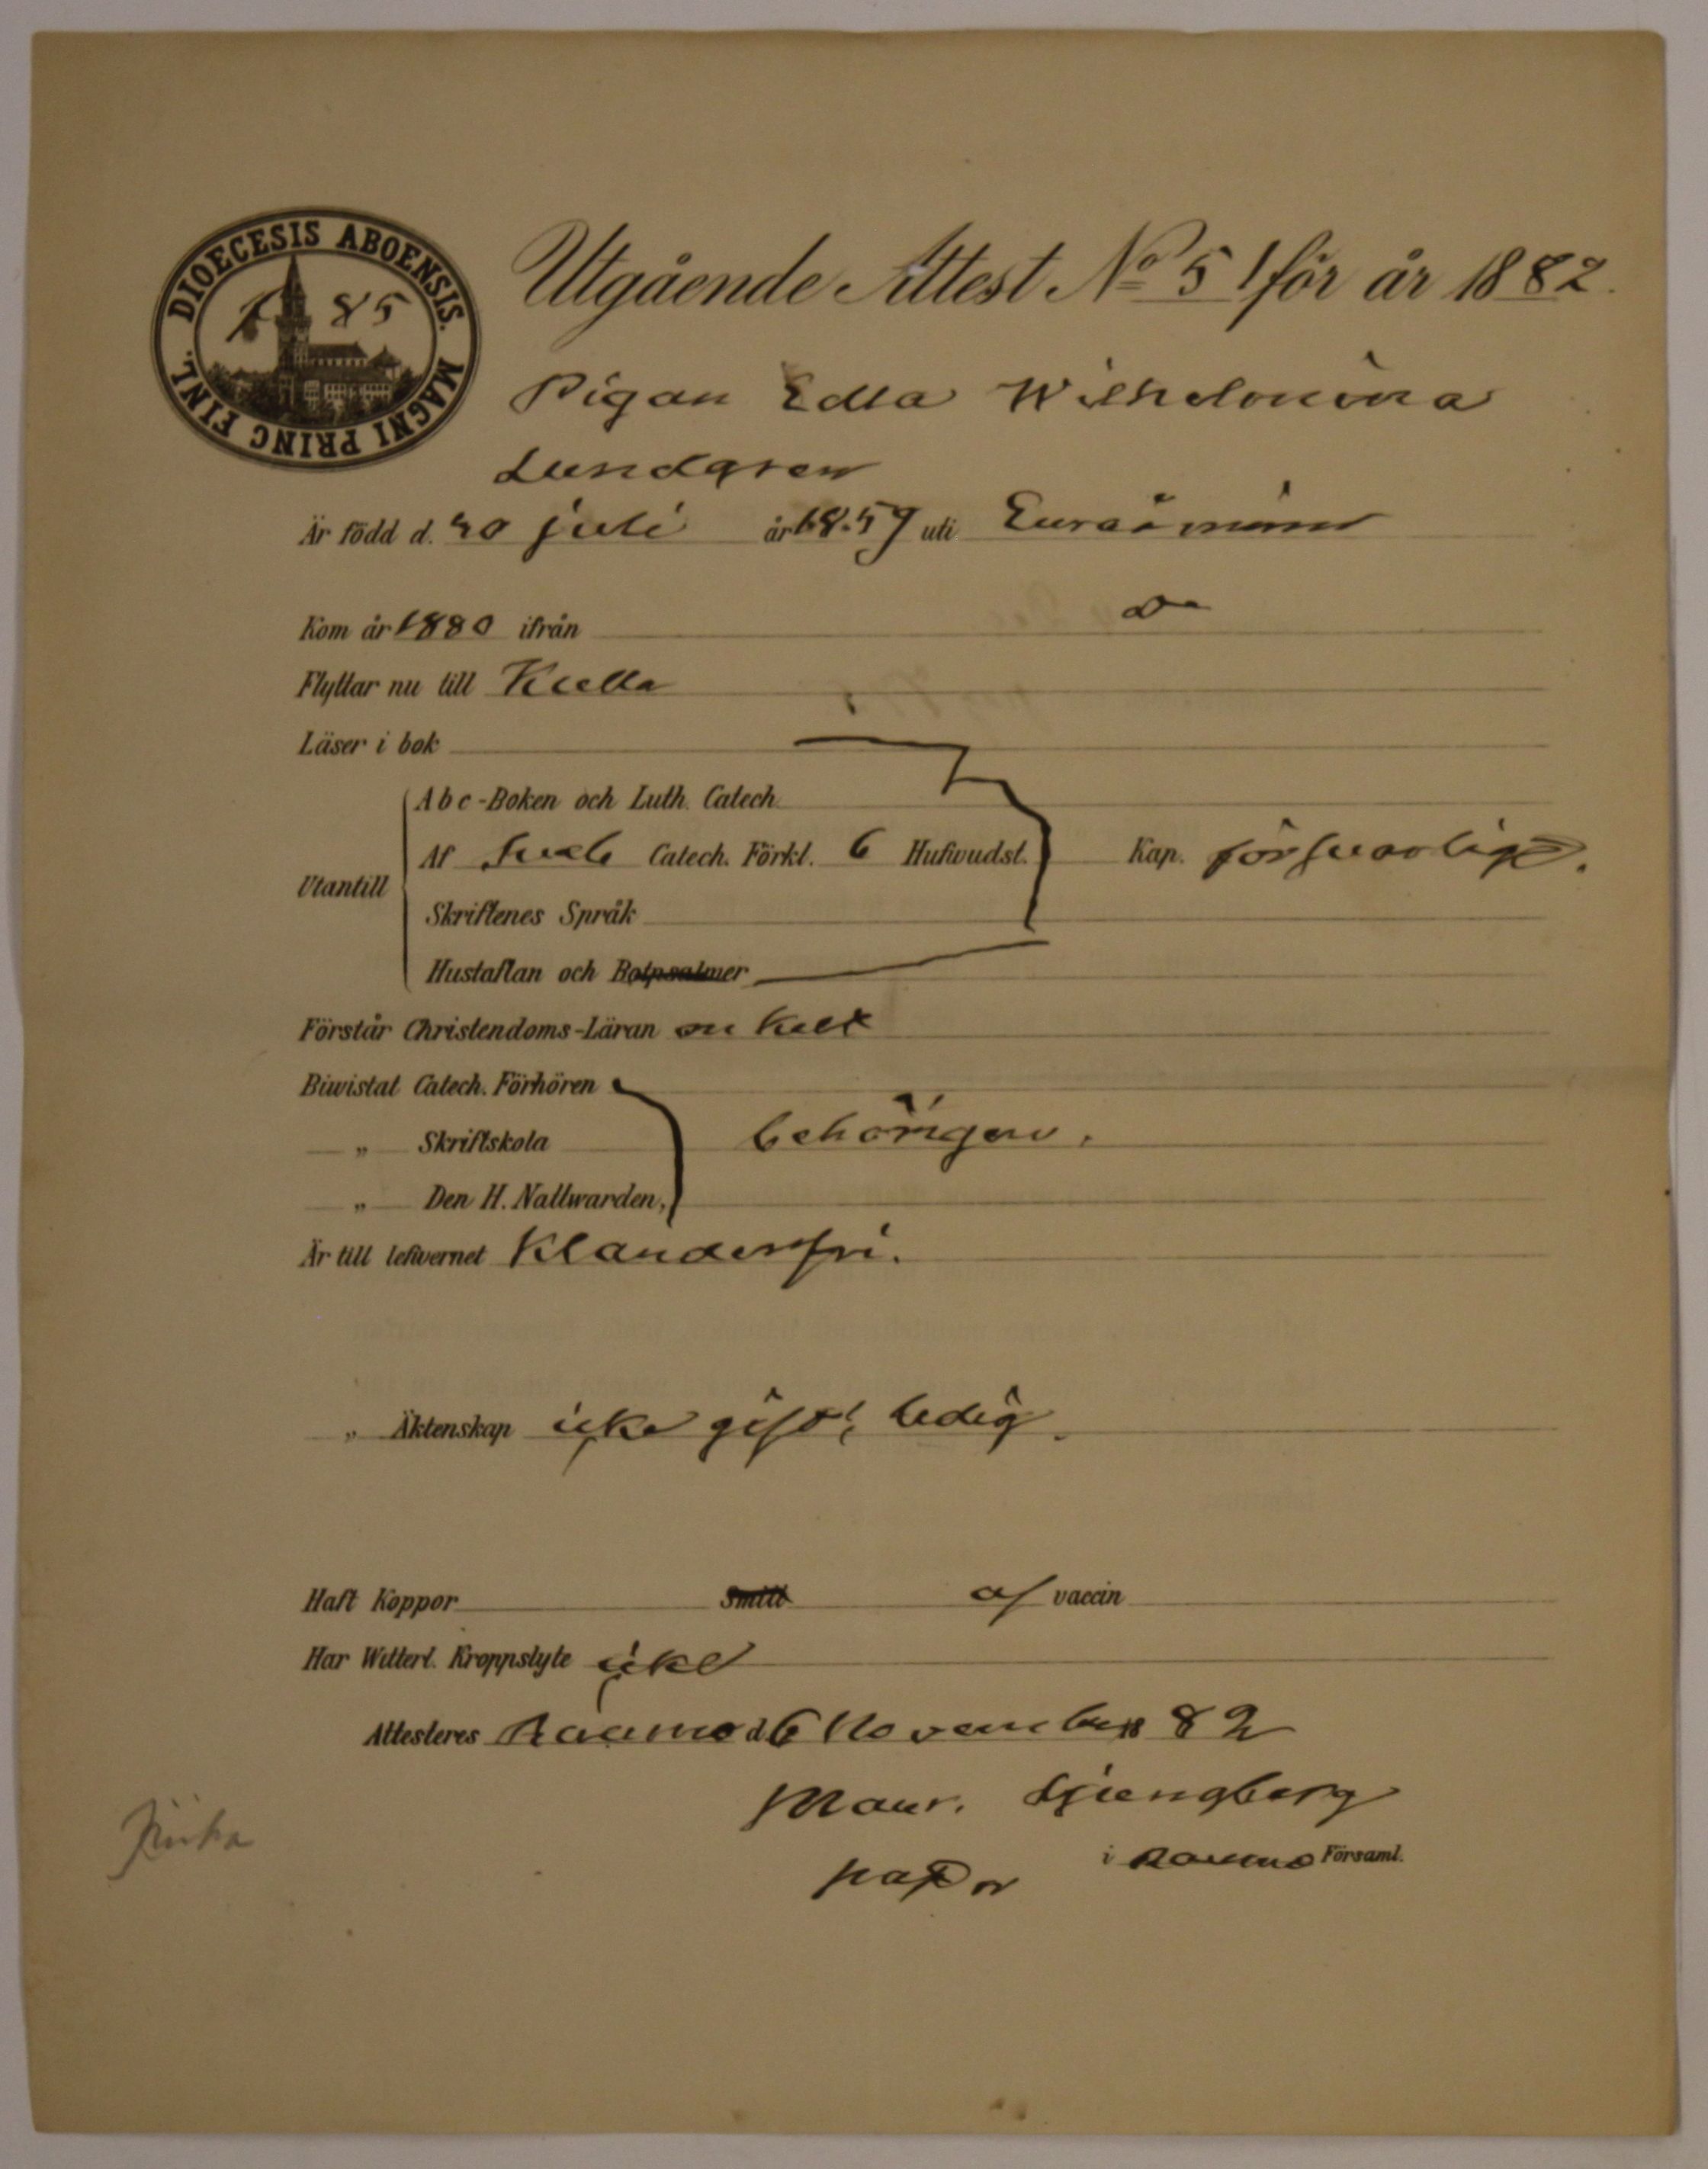 DIOECESIS ABOENSIS. MAGNI PRINC FINL.
85
Utgående Attest No 51 för år 1882.
Pigan Edla Wilhelmina
Lundgren
Är född d. 20 juli år 1859 uti Euraåminne
Kom år 1880 ifrån Do
Flyttar nu till
Läser i bok
Abc-Boken och Luth. Catech.
Utantill
Af Sveb Catech. Förkl. 6 Hufwudst. Kap. försvarligt.
Skriftenes Språk
Hustaflan och Botpsalmer
Förstår Christendoms-Läran enkelt
Biwistat Catech. Förhören
„ Skriftskola behörigen.
„ Den H. Nattwarden,
Är till lefwernet Klanderfri.
„ Äktenskap icke gift, ledig.
Haft Koppor Smitt af vaccin
Har Witterl. Kroppslyte icke
Attesteres Raumo d. 6 November 1882
Maur. Stjengberg
i Raumo Församl.
pastor